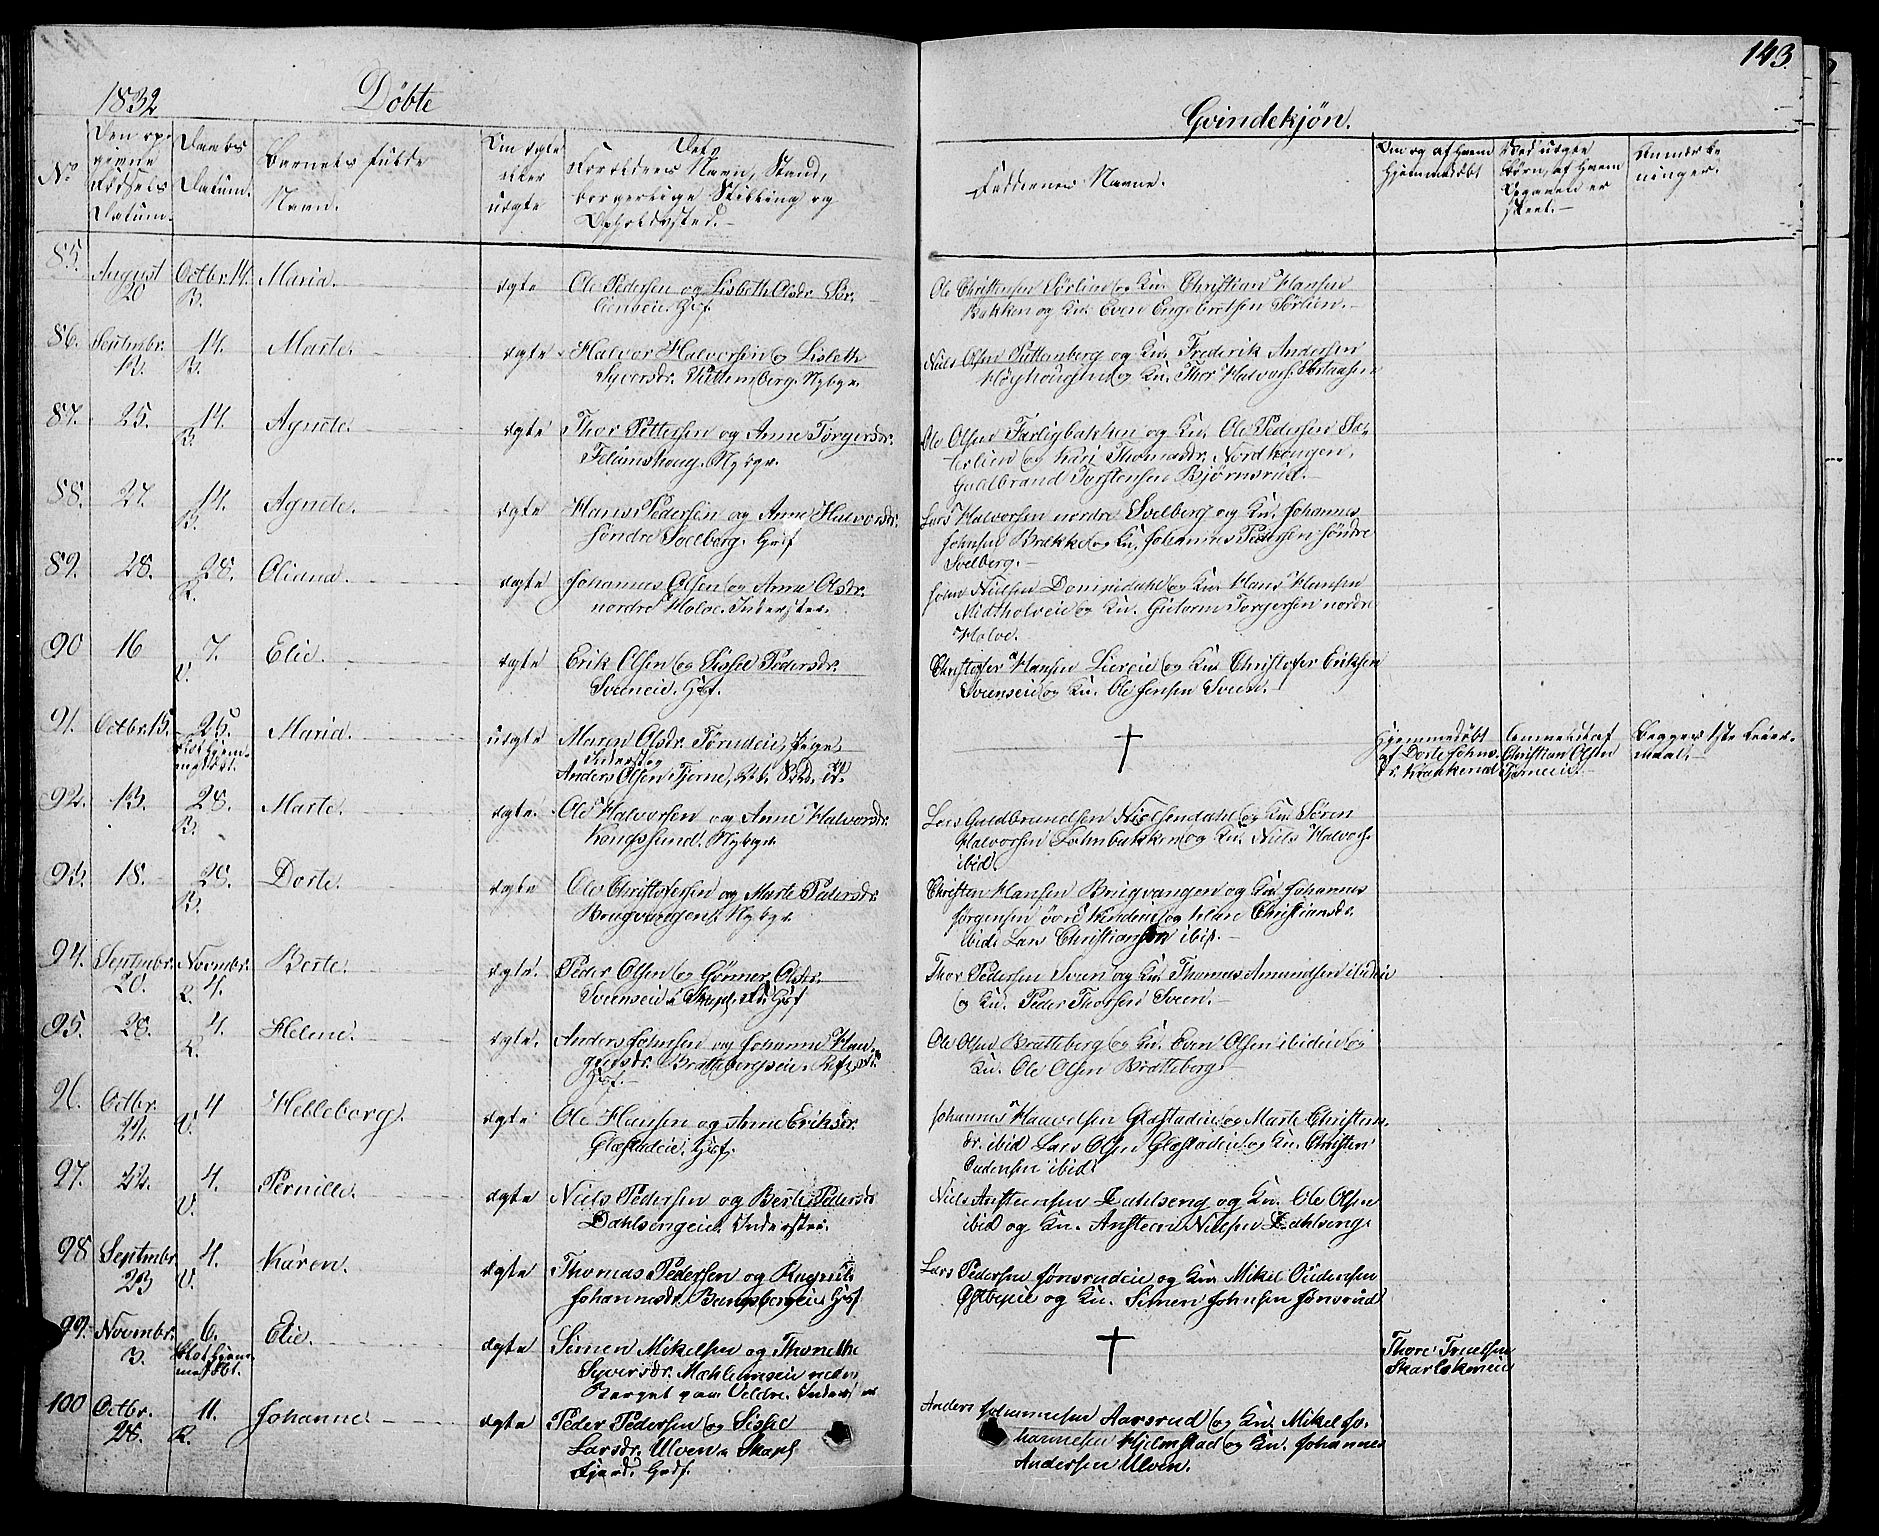 143.
1832 Döbte Qvindekjön.
No
Den op-
givne
Födsels
Datum.
Daabs
Datum.
Barnets fulde
Navn.
Om ægte
eller
uægte
Dets
Forældres Navn, Stand,
borgerlige Stilling og
Opholdssted.
Faddernes Navne.
Om og af hvem
Hjemmedöbt
Ved uægte
Börn, af hvem
Opgaven er
skeet.
Anmærk-
ninger.
85. August 20 Octbr. 14. B. Maria. ægte
Ole Pedersen og Lisbeth Olsdr. Sör-
lienseie. Husf.
Ole Christensen Sörlien og Ku. Christian Hansen
Bakken og Ku. Even Engebretsen Sörlien.
86. Septmbr. 13. 14. B. Marte. ægte
Halvor Halvorsen og Lisbeth
Syversdr. Puttenberg. Nybgr.
Niels Olsen Puttenberg og Ku. Frederik Andersen
Höyhougen og Ku. Thor Halvors.
87. 25. 14. B. Agnete. ægte
Thor Pettersen og Anne Törgersdr.
Nybgr.
Ole Olsen Farligbakken og Ku. Ole Pedersen Sæ-
terlien og Kari Thomasdr. Nordhougen,
Guldbrand Torstensen Björnsrud.
88. 27. 14. B. Agnete. ægte
Hans Pedersen og Anne Halvorsdr.
söndre Svelberg. Grdf.
Lars Halvorsen nordre Svelberg og Ku. Johannes
Johnsen Brække og Ku. Johannes Pedersen söndre
Svelberg.
89. 28. 28. R. Oliana. ægte
Johannes Olsen og Anne Olsdr.
nordre Holve. Inderster.
John Nielsen og Ku. Hans Hansen
Midtholveie og Ku. Gutorm Torgersen nordre
Holve.
90 16 7. V. Elie. ægte
Erik Olsen og Sissel Pedersdr.
Sveneie. Husf.
Christofer Hansen Liereie og Ku. Christofer Eriksen
Sveenseie og Ku. Ole Jensen Sveen.
91. Octbr. 15. 25. blot hjem-
medöbt. Maria. uægte
Maren Olsdr. Törudeie, Pige,
Inderst og
Anders Olsen Tjerne,
†
Hjemmedöbt
af Dorte Johns-
dr.
Anmeldt af
Christian Olsen
Tjerneeie.
Begges 1ste Leier-
maal.
92. 13. 28. B. Marte. ægte.
Ole Halvorsen og Anne Halvorsdr.
Kongssund. Nybgr.
Lars Guldbrandsen Nielsendahl og Ku. Sören
Halvorsen og Ku. Niels Halvors.
ibid.
93. 18. 28. B. Dorte. ægte
Ole Christofersen og Marte Pedersdr.
Brugvangen. Nybgr.
Christen Hansen Brugvangen og Ku. Johannes
Jörgensen övre og Helene Christiansdr.
ibid. Lars Christiansen ibid.
94. Septmbr. 20. Novmbr. 4. R. Berte. ægte.
Peder Olsen og Gönner Olsdr.
Svenseie i Husf
Thor Pedersen Sveen og Ku. Thomas Amundsen ibideie
og Ku. Peder Thorsen Sveen.
95. 28. 4. R. Helene. ægte.
Anders Johnsen og Johanne Han-
Bratteberseie.
Husf.
Ole Olsen Bratteberg og Ku. Even Olsen ibideie og
Ku. Ole Olsen Bratteberg.
96. Octbr. 24. 4 V. Helleborg. ægte
Ole Hansen og Anne Eriksdr.
Glæstadeie. Husf.
Johannes Haavelsen Glæstadeie og Marte Christens-
dr. ibid Lars Olsen Glæstadeie og Ku. Christen
Oudensen ibid.
97. 22. 4. V. Pernille. ægte
Niels Pedersen og Berte Pedersdr.
Dahlsengeie. Inderster.
Niels Ansteensen Dahlseng og Ku. Ole Olsen
ibid og Ku. Ansteen Nielsen Dahlseng.
98 Septmbr. 23 4. V. Karen. ægte
Thomas Pedersen og Ragnild
Johannesdr. Bangsbergeie Husf.
Lars Pedersen Jönsrudeie og Ku. Mikel Oudensen
Östbyeie og Ku. Simen Johnsen Jönsrud
99. Novmbr. 3. 6. Blot hjem-
medöbt. Elie. ægte
Simen Mikelsen og Thonette
Syversdr. Mæhlumseie
Berget paa Veldre. Inderster
†
Thore Truelsen
100 Octbr. 28. 11. R. Johanne. ægte
Peder Pedersen og Sissel
Larsdr. Ulven
Grdf.
Anders Johannesen Aarsrud og Ku. Mikel Jo-
hannesen Hjelmstad og Ku. Johannes
Andersen Ulven.